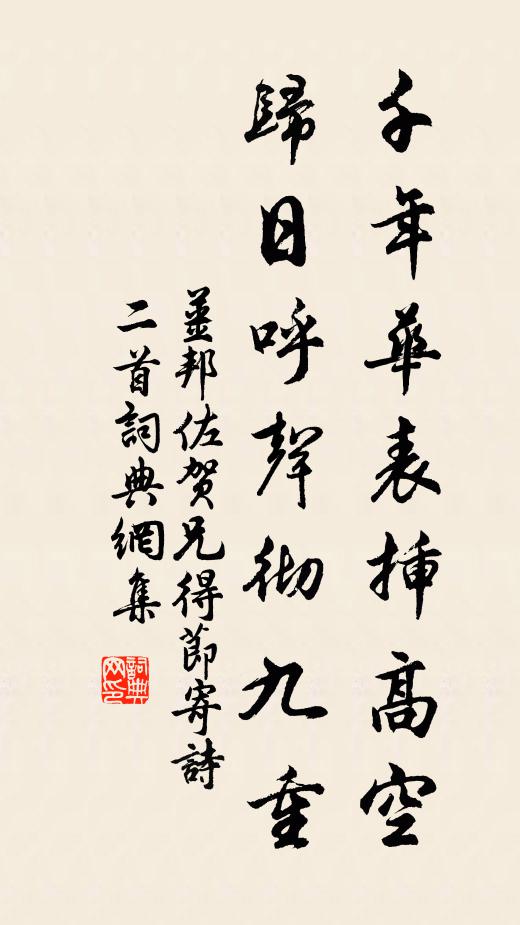 千年華表插高空
歸日呼聲徹九重
姜邦佐賀兄得節寄詩
二首詞典網集
詞典网印